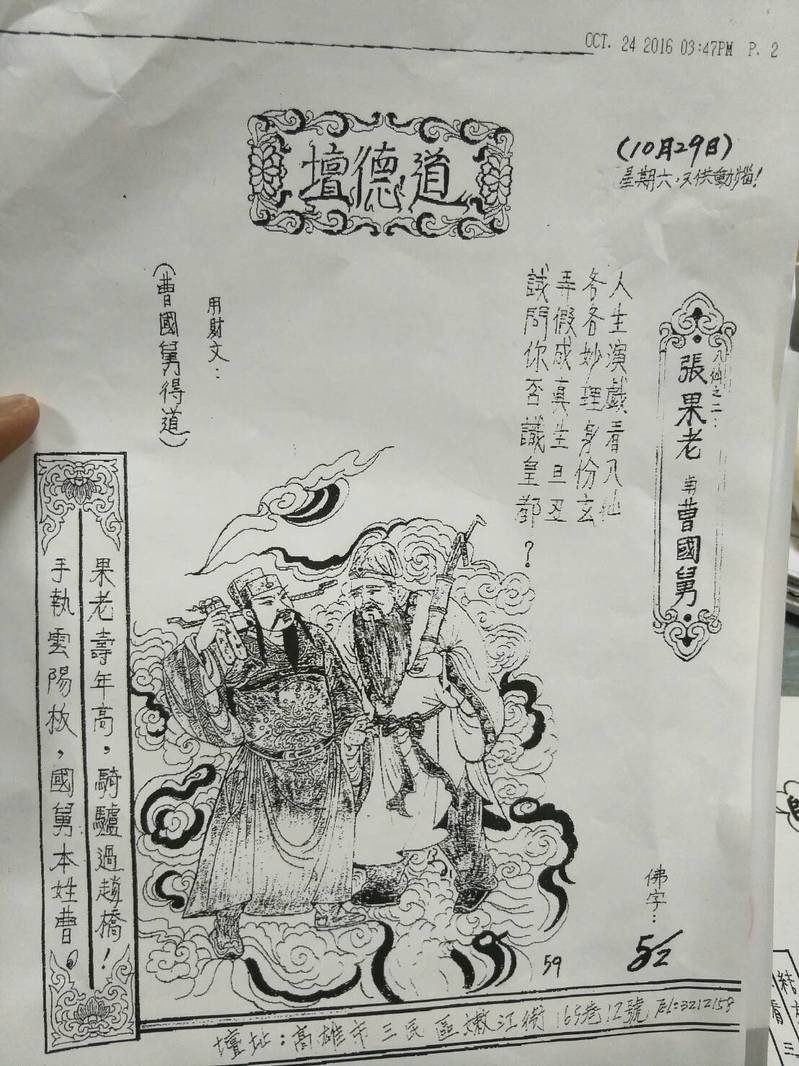 OCT. 24 2016 03:47PM P. 2
道德壇
(10月29日)
星期六,又供動腦!
八仙之二:
張果老 與 曹國舅
人生演戲看八仙
各各妙理身份玄
弄假成真生旦丑
試問你否識皇都?
用財文:
(曹國舅得道)
果老壽年高,騎驢過趙橋!
手執雲陽板,國舅本姓曹。
佛字:
52
59
壇址:高雄市三民區嫩江街165巷12號 TEL:3212158